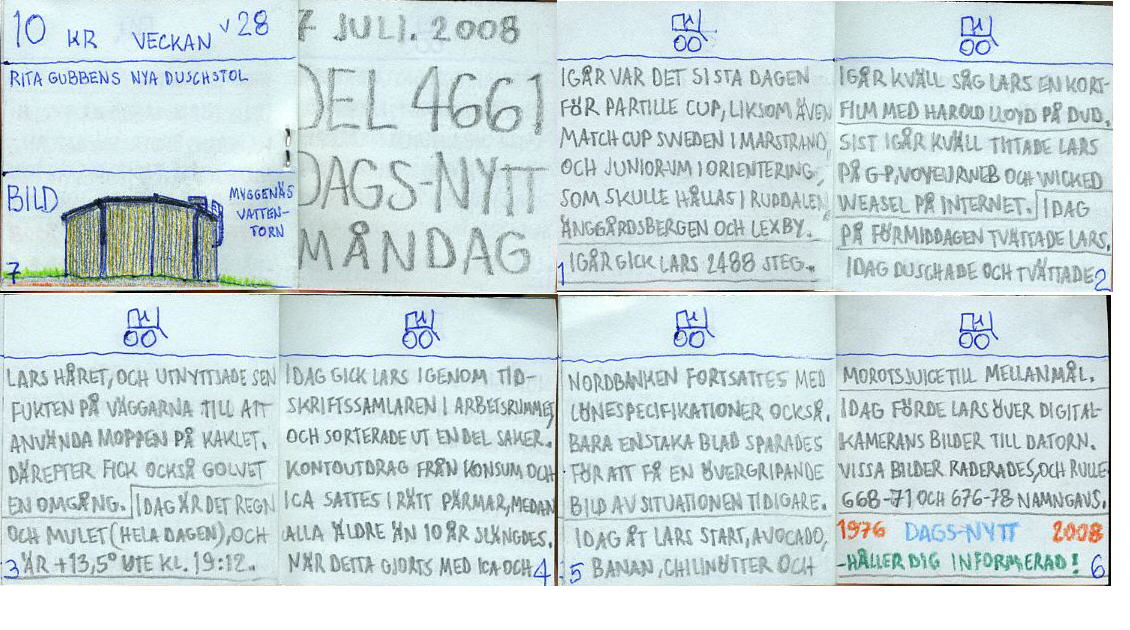 10 KR VECKAN V 28
RITA GUBBENS NYA DUSCHSTOL
BILD
MYGGENÄS
VATTEN-
TORN
7
7 JULI. 2008
DEL 4661
DAGS-NYTT
MÅNDAG
IGÅR VAR DET SISTA DAGEN
FÖR PARTILLE CUP, LIKSOM ÄVEN
MATCH CUP SWEDEN I MARSTRAND,
OCH JUNIOR-VM I ORIENTERING,
SOM SKULLE HÅLLAS I RUDDALEN,
ÄNGGÅRDSBERGEN OCH LEXBY.
IGÅR GICK LARS 2488 STEG.
1
IGÅR KVÄLL SÅG LARS EN KORT-
FILM MED HAROLD LLOYD PÅ DVD.
SIST IGÅR KVÄLL TITTADE LARS
PÅ G-P, VOYEURWEB OCH WICKED
WEASEL PÅ INTERNET. IDAG
PÅ FÖRMIDDAGEN TVÄTTADE LARS.
IDAG DUSCHADE OCH TVÄTTADE
2
LARS HÅRET, OCH UTNYTTJADE SEN
FUKTEN PÅ VÄGGARNA TILL ATT
ANVÄNDA MOPPEN PÅ KAKLET.
DÄREFTER FICK OCKSÅ GOLVET
EN OMGÅNG. IDAG ÄR DET REGN
OCH MULET (HELA DAGEN), OCH
ÄR +13,5° UTE KL. 19:12.
3
IDAG GICK LARS IGENOM TID-
SKRIFTSSAMLAREN I ARBETSRUMMET,
OCH SORTERADE UT EN DEL SAKER.
KONTOUTDRAG FRÅN KONSUM OCH
ICA SATTES I RÄTT PÄRMAR, MEDAN
ALLA ÄLDRE ÄN 10 ÅR SLÄNGDES.
NÄR DETTA GJORTS MED ICA OCH
4
NORDBANKEN FORTSATTES MED
LÖNESPECIFIKATIONER OCKSÅ.
BARA ENSTAKA BLAD SPARADES
FÖR ATT FÅ EN ÖVERGRIPANDE
BILD AV SITUATIONEN TIDIGARE.
IDAG ÅT LARS START, AVOCADO,
BANAN, CHILINÖTTER OCH
5
MOROTSJUICE TILL MELLANMÅL.
IDAG FÖRDE LARS ÖVER DIGITAL-
KAMERANS BILDER TILL DATORN.
VISSA BILDER RADERADES, OCH RULLE
668-71 OCH 676-78 NAMNGAVS.
1976 DAGS-NYTT 2008
-HÅLLER DIG INFORMERAD!
6